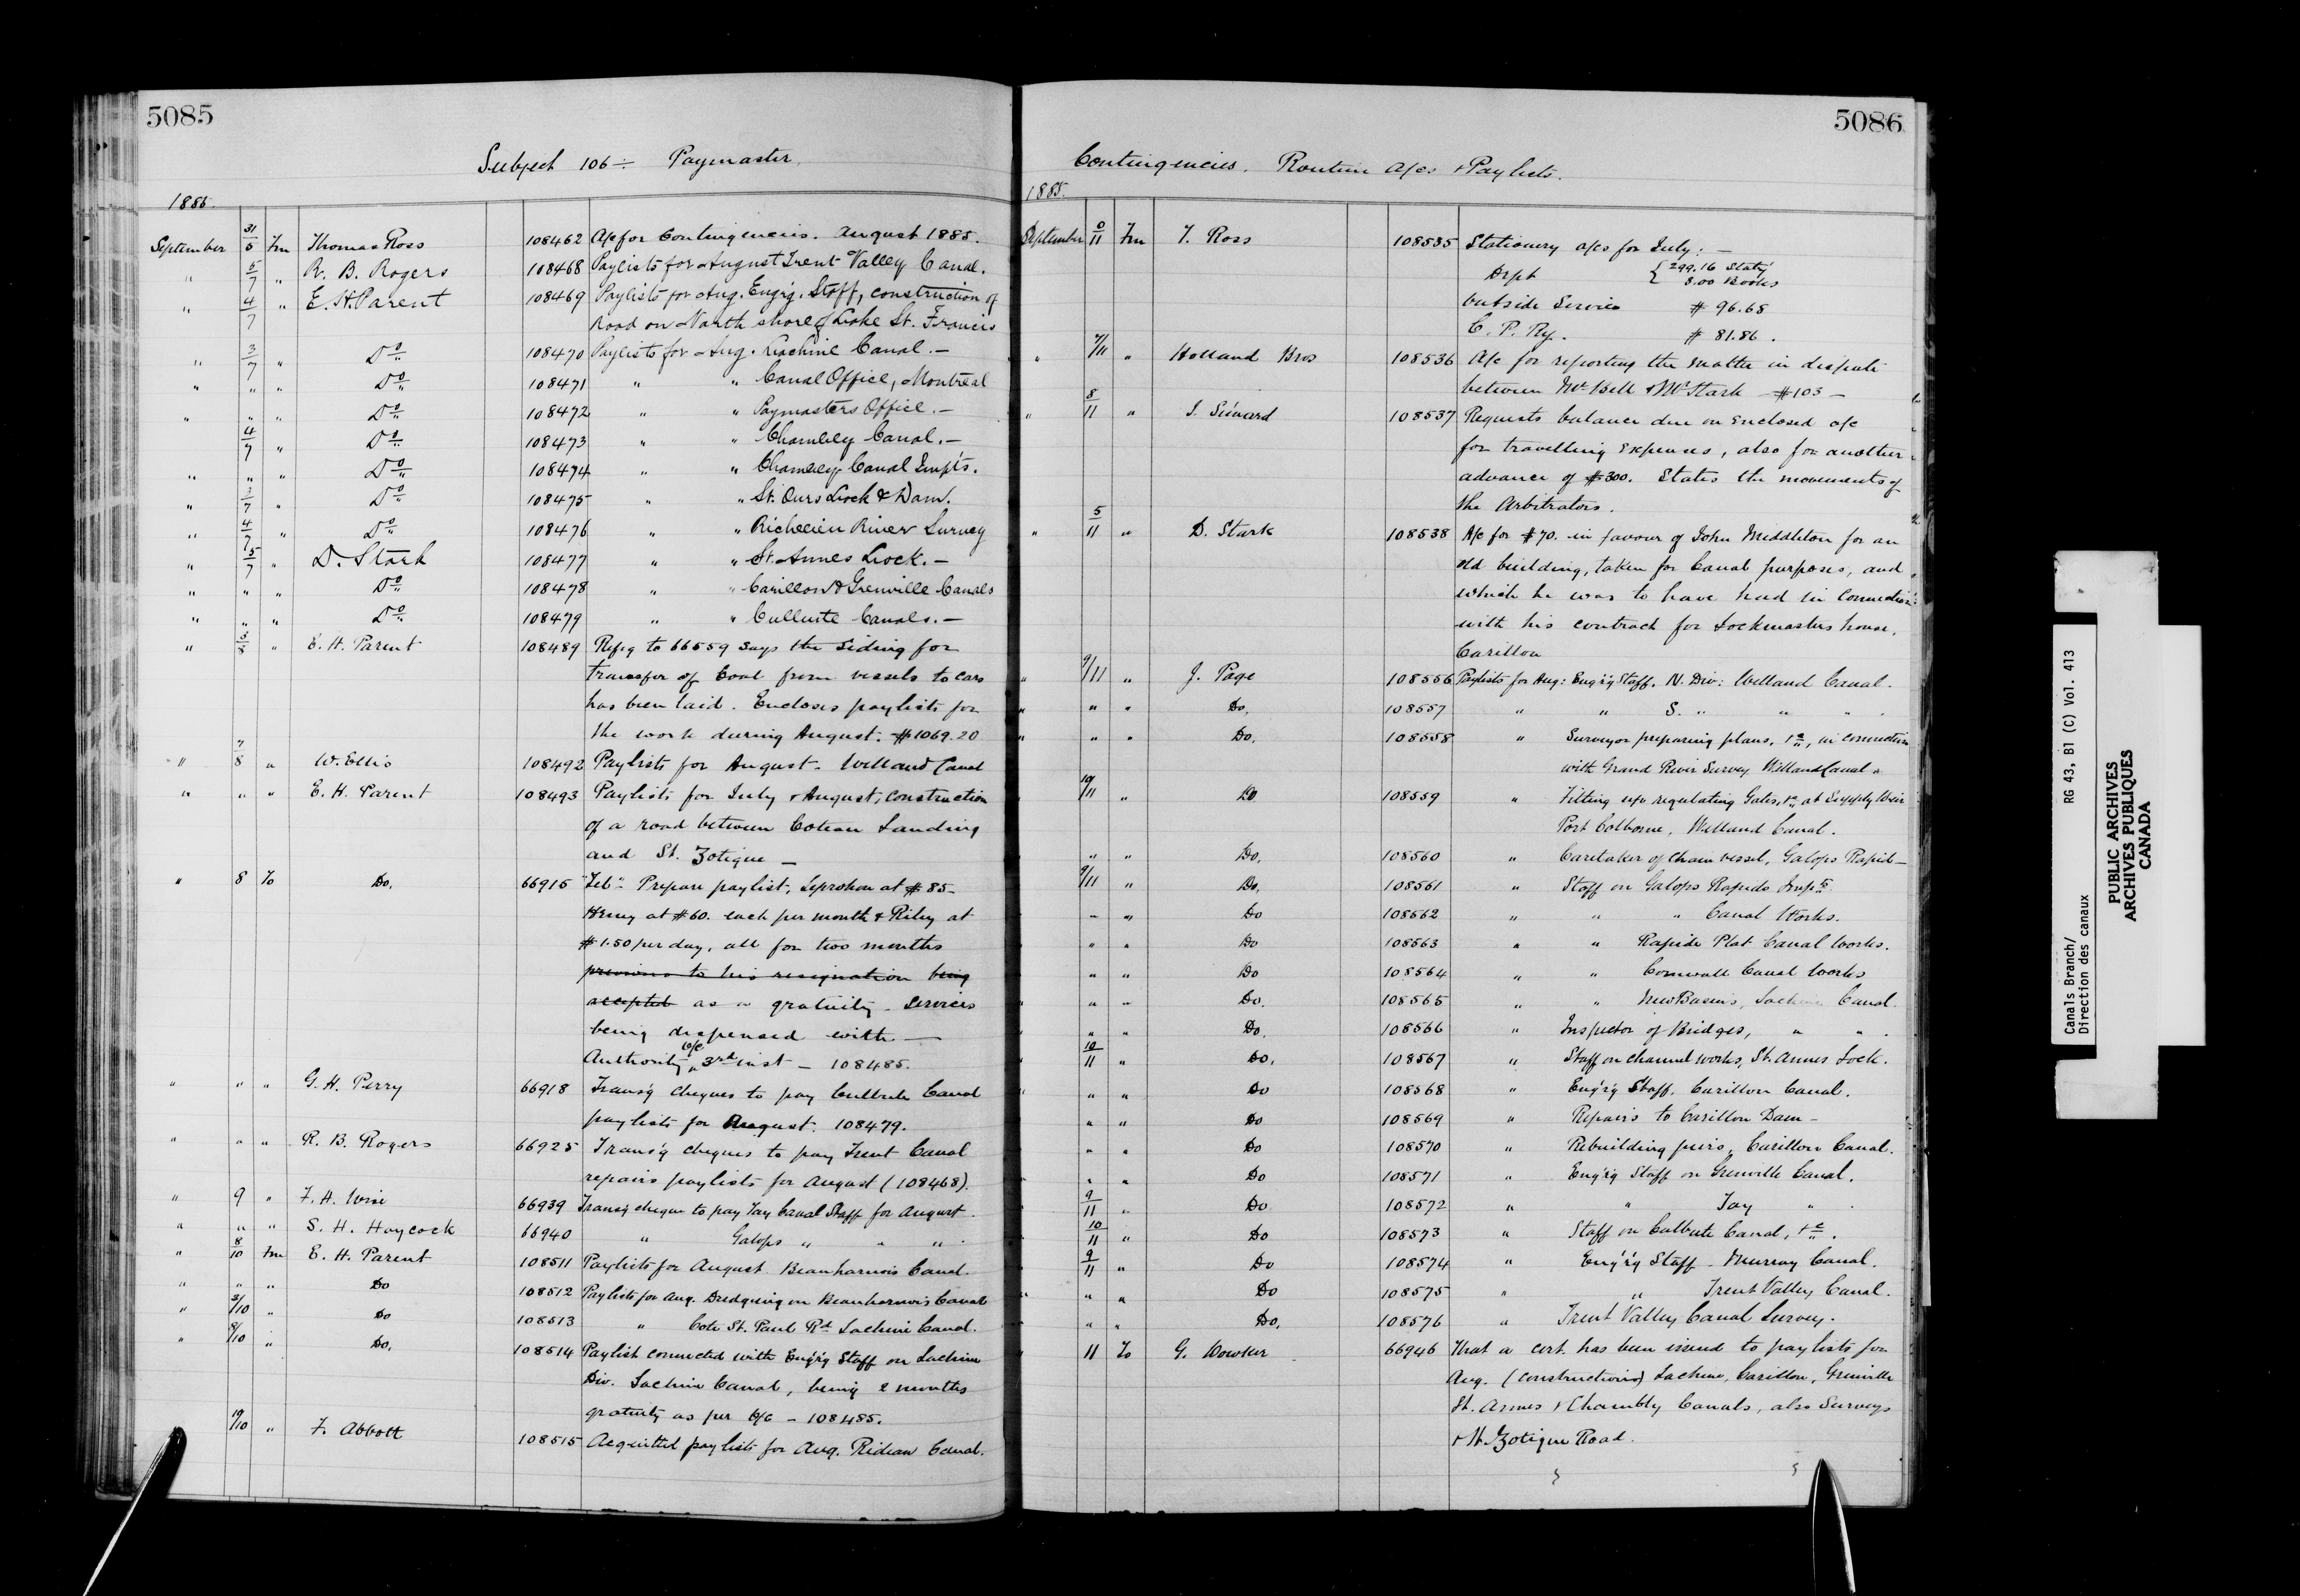 5085
Subject 106 ÷ Paymaster.
1885.
September 31/5 Fm Thomas Ross 108462 A/c for Contingencies. August 1885.
" 5/7 " R. B. Rogers 108468 Paylists for August Trent Valley Canal.
" 4/7 " E. H. Parent 108469 Paylists for Aug. Eng'r'g. Staff, construction of
road on North shore of Lake St. Francis
" 3/7 " Do 108470 Paylists for Aug. Lachine Canal.—
" " " Do 108471 " " Canal Office, Montreal
" " " Do 108472 " " Paymasters Office.—
4/7 " Do 108473 " " Chambly Canal.—
" " " Do 108474 " " Chambly Canal Impts.
" 3/7 " Do 108475 " " St. Ours Lock & Dam.
" 4/7 " Do 108476 " " Richelieu River Survey
" 5/7 " D. Stark 108477 " " St. Annes Lock.—
" " " Do 108478 " " Carillon & Grenville Canals
" " " Do 108479 " " Culbute Canals.—
" 5/8 " E. H. Parent 108489 Refg to 66559 says the siding for
transfer of Coal from vessels to cars
has been laid. Encloses paylists for
the work during August. $1069.20
" 7/8 " W. Ellis 108492 Paylists for August. Welland Canal
" " " E. H. Parent 108493 Paylists for July & August, construction
of a road between Coteau Landing
and St. Zotique —
" 8 To Do. 66915 Prepare paylist, at $85
Henry at $60. each per month & Riley at
$1.50 per day, all for two months
previous to his resignation being
accepted as a gratuity. services
being dispensed with —
Authority O/C 3rd inst — 108485.
" " " G. H. Perry 66918 Trans'g cheques to pay Culbute Canal
paylists for August. 108479.
" " " R. B. Rogers 66925 Trans'g cheques to pay Trent Canal
repairs paylists for August (108468).
" 9 " F. A. Wise 66939 Trans'g cheque to pay Tay Canal Staff for August.
" " " S. H. Haycock 66940 " Galops " " " .
" 8/10 Fm E. H. Parent 108511 Paylists for August Beauharnois Canal.
" " " Do 108512 Paylists for Aug. Dredging on Beauharnois Canal
" 3/10 " Do 108513 " Cote St. Paul Rd Lachine Canal.
" 8/10 " Do. 108514 Paylist connected with Eng'r'g Staff on Lachine
Div. Lachine Canal, being 2 months
gratuity as per O/C — 108485.
10/10 " F. Abbott 108515 Acquitted paylists for Aug. Rideau Canal.
5086
Contingencies. Routine A/cs & Paylists.
1885.
September 0/11 Fm T. Ross 108535 Stationery a/cs for July: —
Dept { 299.16 Staty
3.00 Books
Outside Service $ 96.68
C. P. Ry. $ 81.86.
" 7/11 " Holland Bros 108536 A/c for reporting the matter in dispute
between Mr Bell & Mr Stark — $103 —
" 8/11 " J. Simard 108537 Requests balance due on enclosed a/c
for travelling expenses, also for another
advance of $300. States the movements of
the Arbitrators.
" 5/11 " D. Stark 108538 A/c for $70. in favour of John Middleton for an
old building, taken for Canal purposes, and
which he was to have had in connection
with his contract for Lockmasters house,
Carillon
" 9/11 " J. Page 108556 Paylists for Aug: Eng'r'g Staff. N. Div: Welland Canal.
" " " Do. 108557 " " S. " " " .
" " " Do. 108558 " Survey or preparing plans, &c, in connection
with Grand River Survey Welland Canal
10/11 " Do 108559 " Fitting up regulating Gates, &c, at Supply Weir
Port Colborne, Welland Canal.
" " Do. 108560 " Caretaker of Chain vessel, Galops Rapid—
9/11 " Do. 108561 " Staff on Galops Rapids Impts
" " Do 108562 " " " Canal Works.
" " Do 108563 " " Rapide Plat Canal Works.
" " Do 108564 " " Cornwall Canal Works
" " Do. 108565 " " New Basins, Lachine Canal.
" " Do. 108566 " Inspector of Bridges, " " .
10/11 " Do. 108567 " Staff on channel works, St. Annes Lock.
" " Do 108568 " Eng'r'g Staff. Carillon Canal.
" " Do 108569 " Repairs to Carillon Dam —
" " Do 108570 " Rebuilding piers, Carillon Canal.
" " Do 108571 " Eng'r'g Staff on Grenville Canal.
9/11 " Do 108572 " " Tay " .
10/11 " Do 108573 " Staff on Culbute Canal, &c.
9/11 " Do 108574 " Eng'r'g Staff — Murray Canal.
" " " Do 108575 " " Trent Valley Canal.
" " Do. 108576 " Trent Valley Canal Survey.
" 11 To G. Dowker 66946 That a cert. has been issued to paylists for
Aug. (construction) Lachine, Carillon, Grenville
St. Annes & Chambly Canals, also Surveys
& St. Zotique Road.
Canals Branch/
Direction des canaux
RG 43, B1 (C) Vol. 413
PUBLIC ARCHIVES
ARCHIVES PUBLIQUES
CANADA